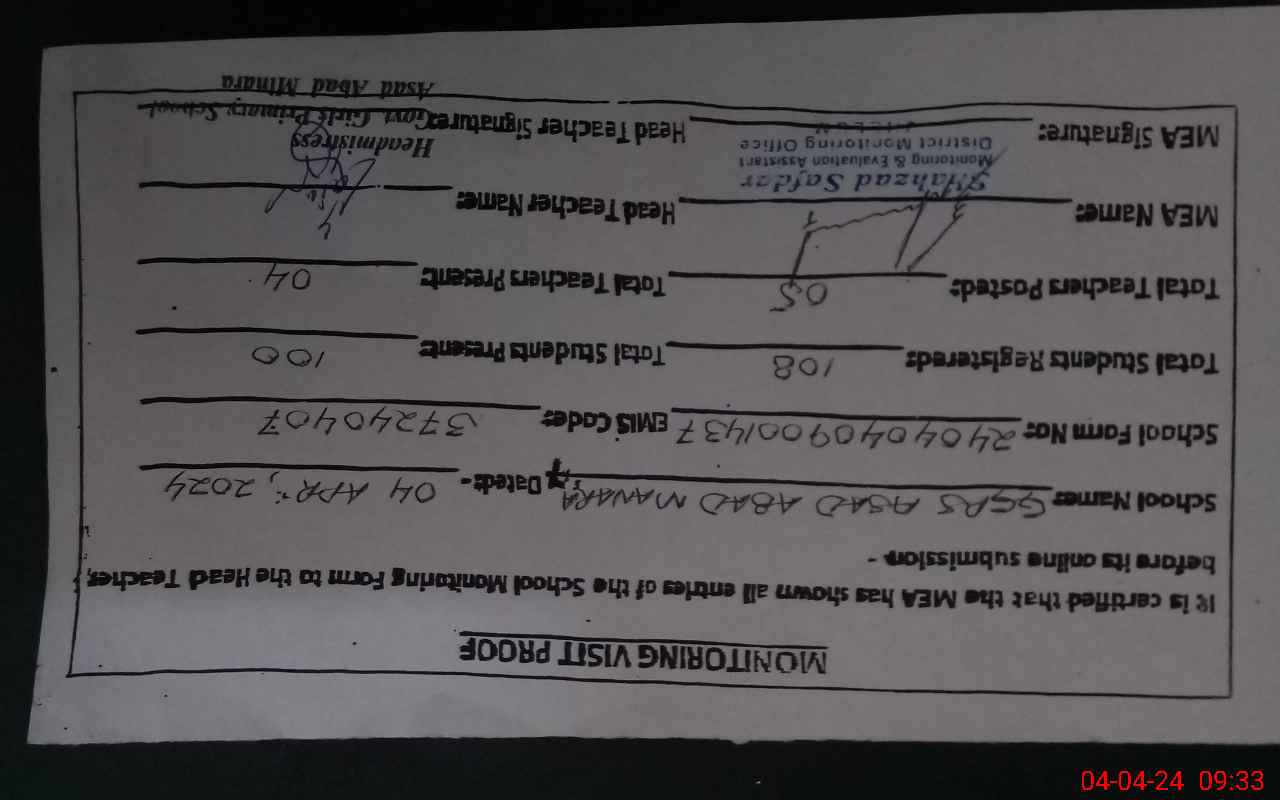 MONITORING VISIT PROOF
It is certified that the MEA has shown all entries of the School Monitoring Form to the Head Teacher,
before its online submission -
School Name: GGPS ASAD ABAD MANARA Dated:- 04 APR, 2024
School Form No: 240404090014 37 EMIS Code: 37240407
Total Students Registered: 108 Total Students Present: 100
Total Teachers Posted: 05 Total Teachers Present: 04
MEA Name: Head Teacher Name:
Shahzad Safdar
Monitoring & Evaluation Assistant
District Monitoring Office
Headmistress
MEA Signature: Head Teacher Signature: Govt. Girls Primary School
Asad Abad Minara
04-04-24 09:33